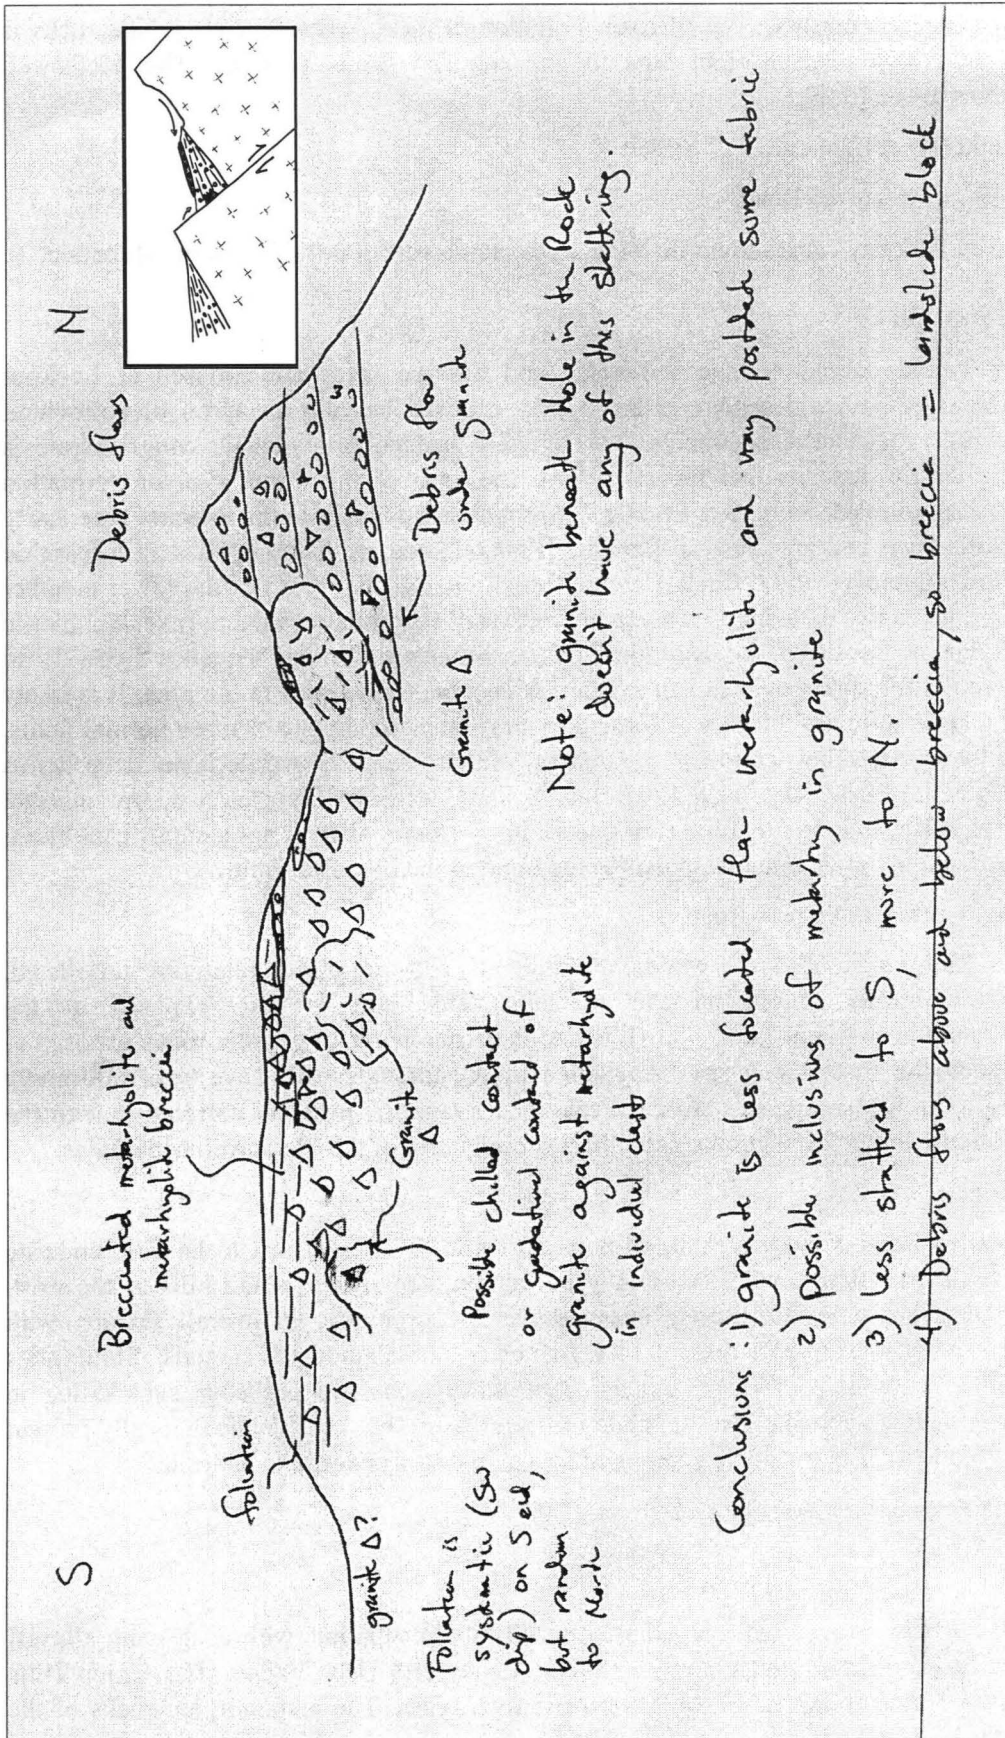 S
N
Brecciated metarhyolite and
metarhyolite breccia
Debris flows
foliation
granite Δ?
Foliation is
systematic (SW
dip) on S end,
but random
to North
Granite
Δ
Possible chilled contact
or gradational contact of
granite against metarhyolite
in individual clasts
Granite Δ
Debris flow
under granite
Note: granite beneath Hole in the Rock
doesn't have any of this shattering.
Conclusions: 1) granite is less foliated than metarhyolite and may postdate some fabric
2) possible inclusions of metarhy in granite
3) Less shattered to S, more to N.
4) Debris flows above and below breccia, so breccia = landslide block